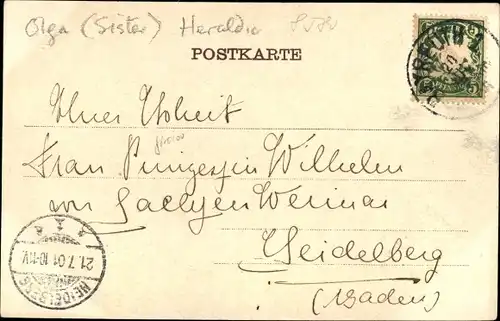 Olga (Sister) Heraldic
POSTKARTE
BAYREUTH
Ihrer Hoheit
Frau Prinzessin Wilhelm
von Sachsen Weimar
Heidelberg
(Baden)
HEIDELBERG
21.7.01.10-11V.